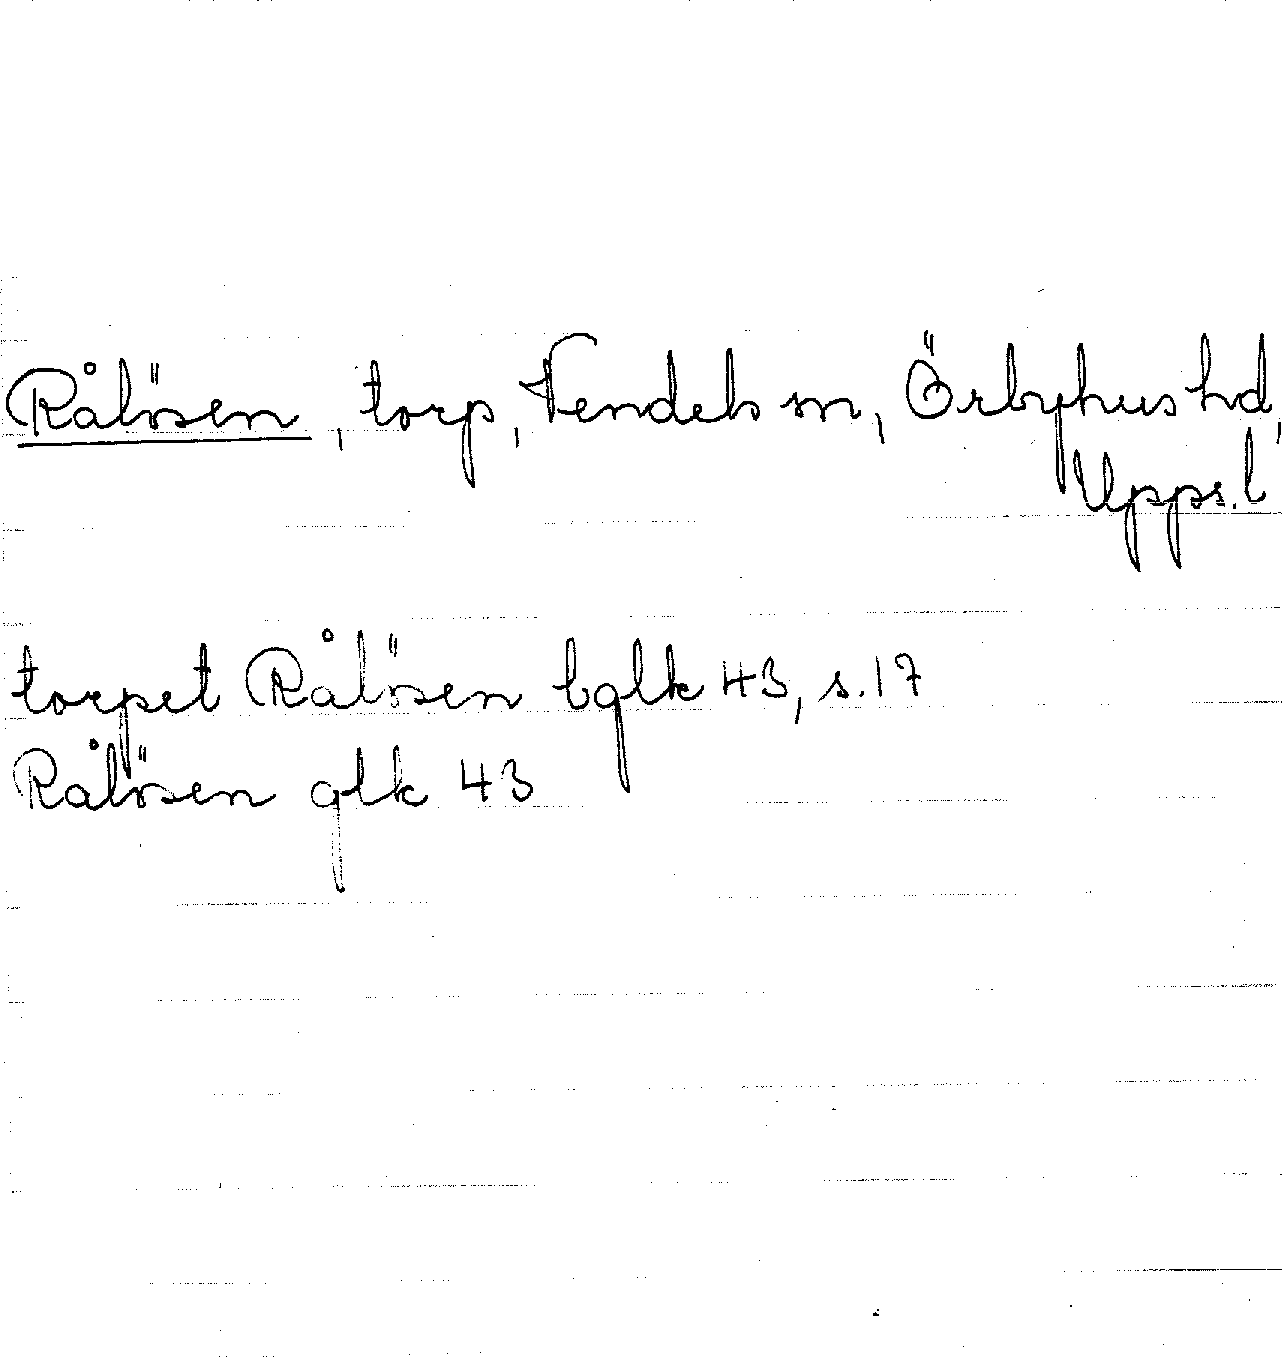 Rålösen, torp, Vendels sn, Örbyhus hd,
Upps. l
torpet Rålösen bglk 43, s. 17
Rålösen glk 43